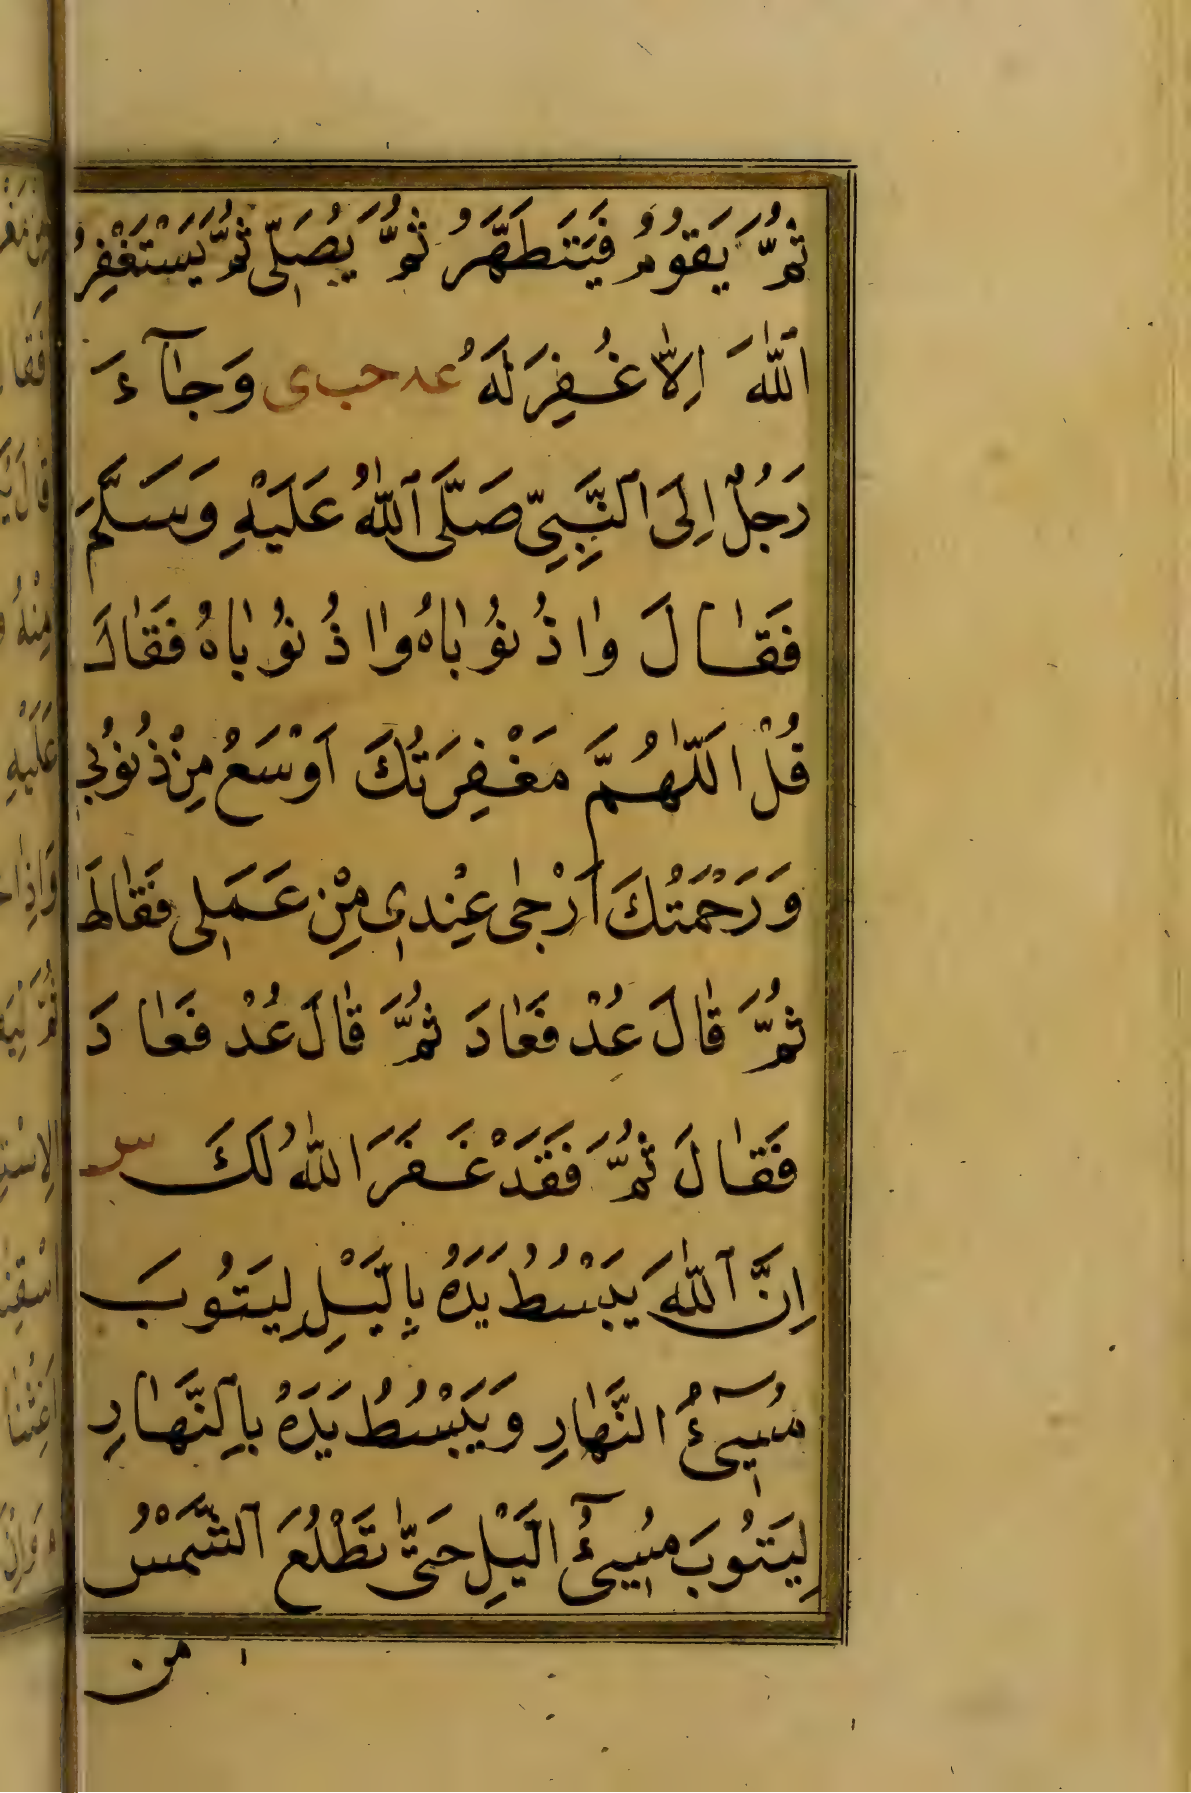 ثُمَّ يَقُومُ فَيَتَطَهَّرُ ثُمَّ يُصَلِّى ثُمَّ يَسْتَغْفِرُ
اللّٰهَ اِلاَّ غُفِرَ لَهُ عه حب ى وَجَاۤءَ
رَجُلٌ اِلَى النَّبِىِّ صَلَّى اللّٰهُ عَلَيْهِ وَسَلَّمَ
فَقَالَ وَاذُنُوبَاهُ وَاذُنُوبَاهُ فَقَالَ
قُلْ اللّٰهُمَّ مَغْفِرَتُكَ اَوْسَعُ مِنْ ذُنُوبِى
وَرَحْمَتُكَ اَرْجٰى عِنْدِى مِنْ عَمَلِى فَقَالَهَا
ثُمَّ قَالَ عُدْ فَعَادَ ثُمَّ قَالَ عُدْ فَعَادَ
فَقَالَ قُمْ فَقَدْ غَفَرَ اللّٰهُ لَكَ مس
اِنَّ اللّٰهَ يَبْسُطُ يَدَهُ بِالَّيْلِ لِيَتُوبَ
مُسِىۤءُ النَّهَارِ وَيَبْسُطُ يَدَهُ بِالنَّهَارِ
لِيَتُوبَ مُسِىۤءُ الَّيْلِ حَتّٰى تَطْلُعَ الشَّمْسُ
من